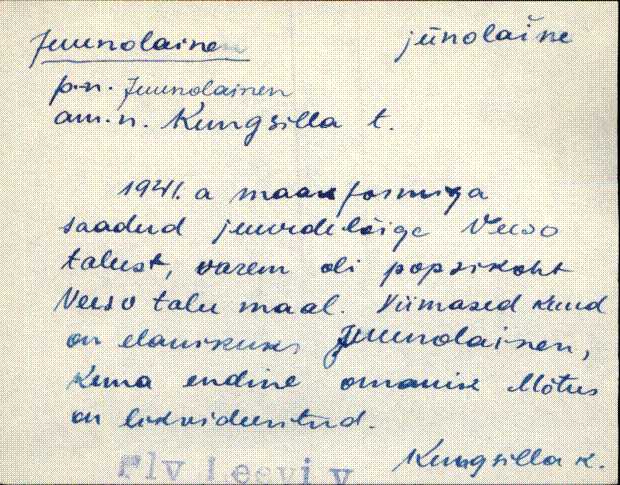 Juunolainen jūnolai̮ne
p.n. Juunolainen
am.n. Kungsilla t.
1941. a maareformiga
saadud juurdelõige Veeso
talust, varem oli popsikoht
Veeso talu maal. Viimased kuud
on elanikuks Juunolainen,
kuna endine omanik Mõtus
on likvideeritud.
Kungsilla k.